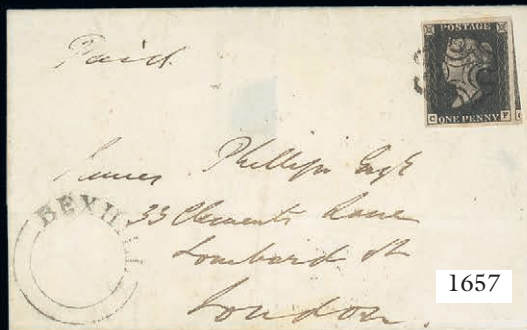 Paid
POSTAGE
C F
ONE PENNY
James Phillips Esqr
33 Clements Lane
Lombard St
London.
BEXHILL
1657